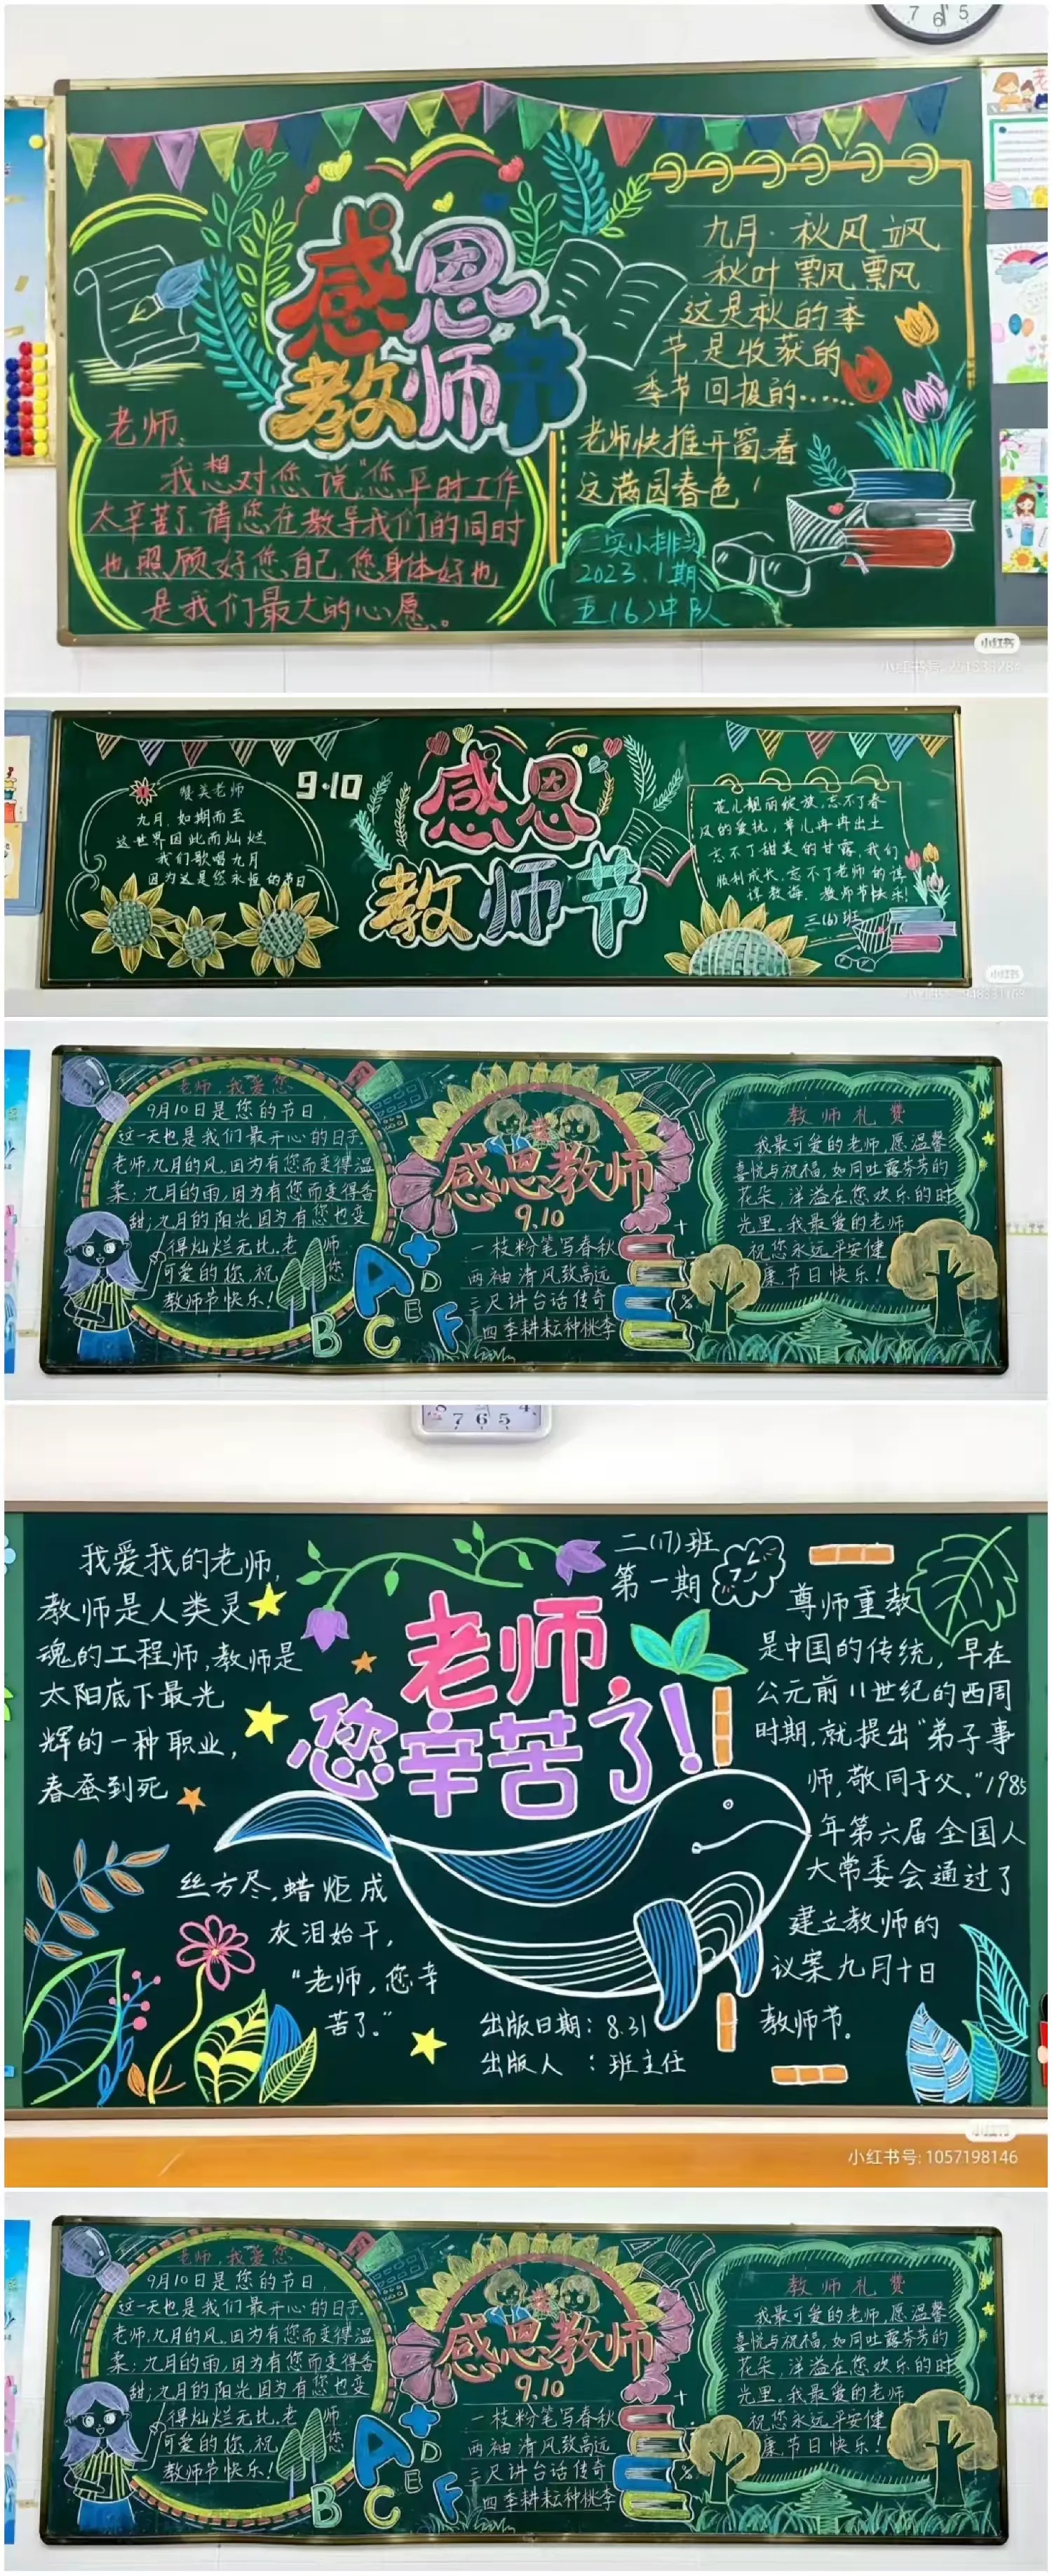 7 6 5
感恩
教师节
老师、
我想对您说"您平时工作
太辛苦了、请您在教导我们的同时
也照顾好您自己、您身体好也
是我们最大的心愿。
九月·秋风飒
秋叶飘风飘
这是秋的季
节是收获的
季节回报的……
老师快推开窗、看
这满园春色!
2023.1期
五(6)中队
小红书
9·10
感恩
教师节
赞美老师
九月如期而至
这世界因此而灿烂
我们歌唱九月
因为这是您永恒的节日
花儿靓丽绽放,忘不了春
风的爱抚,草儿冉冉出土
忘不了甜美的甘露,我们
顺利成长,忘不了老师的谆
谆教诲.教师节快乐!
三(6)班
小红书
老师,我爱您
9月10日是您的节日,
这一天也是我们最开心的日子.
老师,九月的风,因为有您而变得温
柔;九月的雨,因为有您而变得香
甜;九月的阳光因为有您也变
得灿烂无比.老师
可爱的您,祝您
教师节快乐!
A
B
C
D
E
F
感恩教师
9.10
一枝粉笔写春秋
两袖清风致高远
三尺讲台话传奇
四季耕耘种桃李
教师礼赞
我最可爱的老师,愿温馨
喜悦与祝福,如同吐露芬芳的
花朵,洋溢在您欢乐的时
光里。我最爱的老师
祝您永远平安健
康.节日快乐!
8 7 6 5 4
我爱我的老师,
教师是人类灵
魂的工程师,教师是
太阳底下最光
辉的一种职业,
春蚕到死
丝方尽,蜡炬成
灰泪始干,
"老师,您辛
苦了."
老师,
您辛苦了!
二(17)班
第一期
出版日期:8.31
出版人 :班主任
尊师重教
是中国的传统,早在
公元前11世纪的西周
时期,就提出"弟子事
师,敬同于父."1985
年第六届全国人
大常委会通过了
建立教师的
议案九月十日
教师节。
小红书号:1057198146
老师,我爱您
9月10日是您的节日,
这一天也是我们最开心的日子.
老师,九月的风,因为有您而变得温
柔;九月的雨,因为有您而变得香
甜;九月的阳光因为有您也变
得灿烂无比.老师
可爱的您,祝您
教师节快乐!
A
B
C
D
E
F
感恩教师
9.10
一枝粉笔写春秋
两袖清风致高远
三尺讲台话传奇
四季耕耘种桃李
教师礼赞
我最可爱的老师,愿温馨
喜悦与祝福,如同吐露芬芳的
花朵,洋溢在您欢乐的时
光里。我最爱的老师
祝您永远平安健
康.节日快乐!